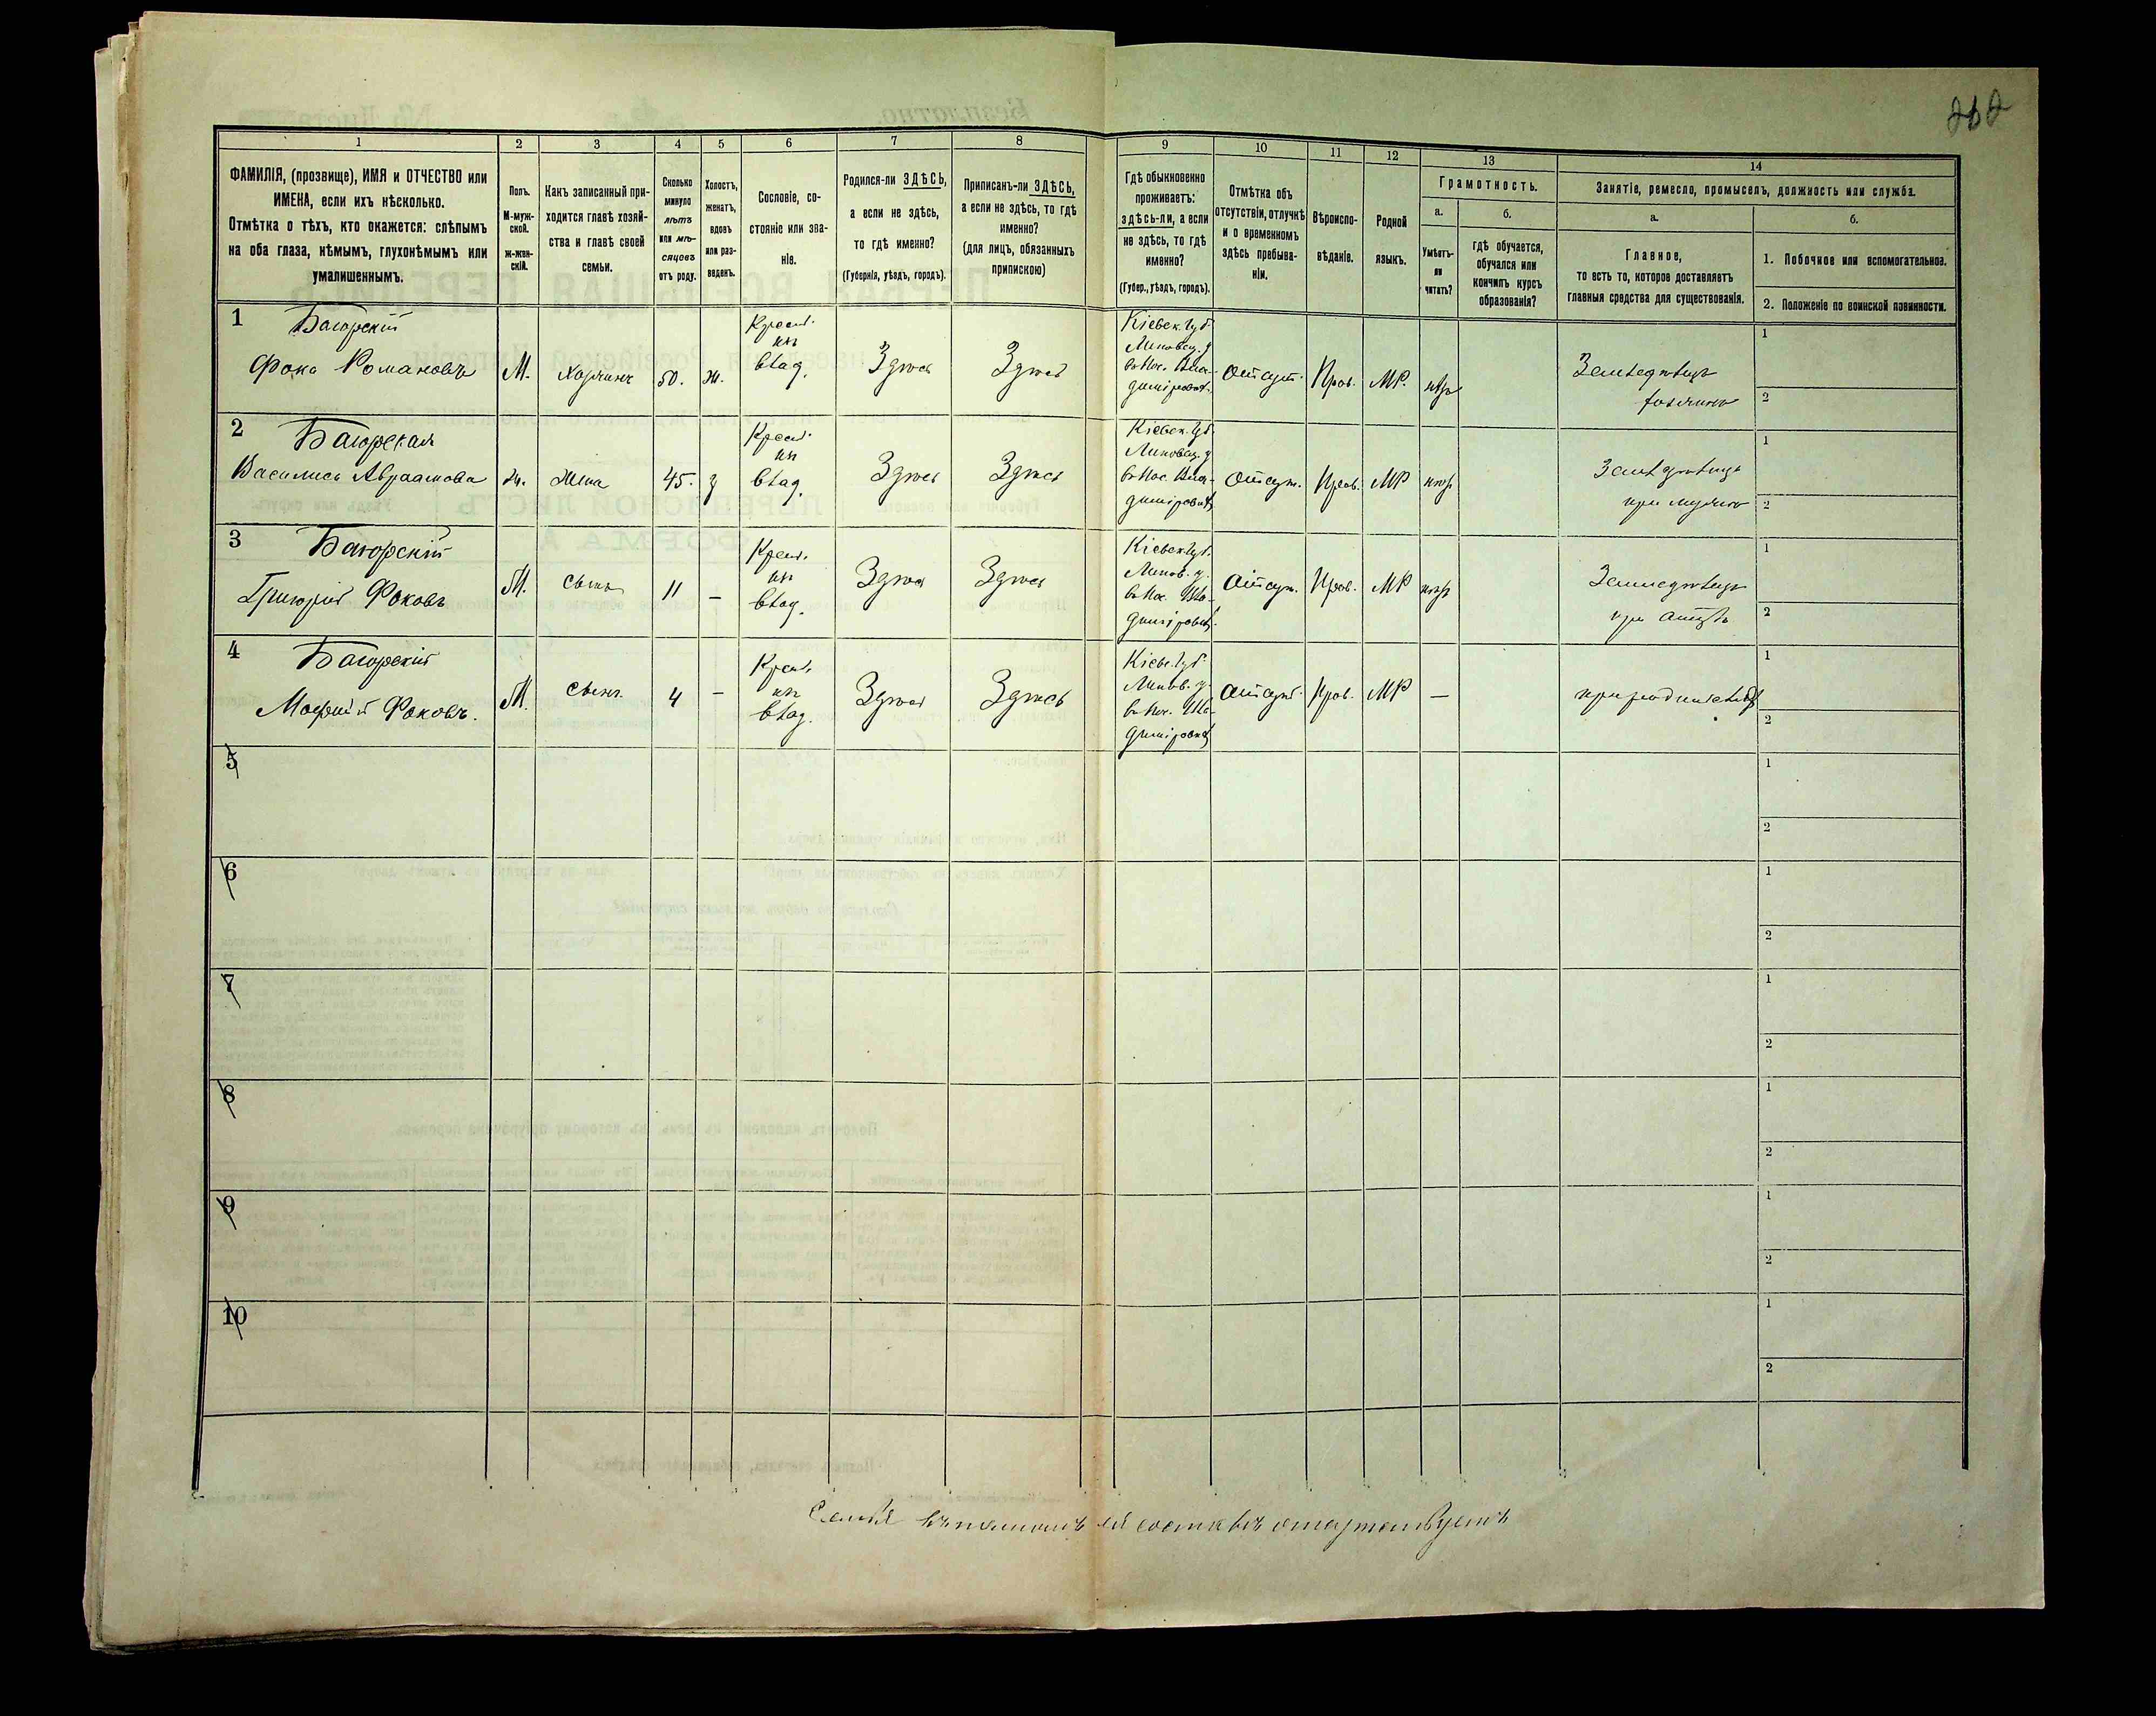 262
1
2
3
4
5
6
7
8
9
10
11
12
13
14
ФАМИЛІЯ, (прозвище), ИМЯ и ОТЧЕСТВО или
ИМЕНА, если ихъ нѣсколько.
Отмѣтка о тѣхъ, кто окажется: слѣпымъ
на оба глаза, нѣмымъ, глухонѣмымъ или
умалишеннымъ.
Полъ.
М-муж-
ской.
ж-жен-
скій.
Какъ записанный при-
ходится главѣ хозяй-
ства и главѣ своей
семьи.
Сколько
минуло
лѣтъ
или мѣ-
сяцевъ
отъ роду.
Холостъ,
женатъ,
вдовъ
или раз-
веденъ.
Сословіе, со-
стояніе или зва-
ніе.
Родился-ли ЗДѢСЬ,
а если не здѣсь,
то гдѣ именно?
(Губернія, уѣздъ, городъ).
Приписанъ-ли ЗДѢСЬ,
а если не здѣсь, то гдѣ
именно?
(для лицъ, обязанныхъ
припискою)
Гдѣ обыкновенно
проживаетъ:
здѣсь-ли, а если
не здѣсь, то гдѣ
именно?
(Губер., уѣздъ, городъ).
Отмѣтка объ
отсутствіи, отлучкѣ
и о временномъ
здѣсь пребыва-
ніи.
Вѣроиспо-
вѣданіе.
Родной
языкъ.
Грамотность.
а.
Умѣетъ-
ли
читать?
б.
гдѣ обучается,
обучался или
кончилъ курсъ
образованія?
Занятіе, ремесло, промыселъ, должность или служба.
а.
Главное,
то есть то, которое доставляетъ
главныя средства для существованія.
б.
1. Побочное или вспомогательное.
2. Положеніе по воинской повинности.
1
Багорскій
Фока Романовъ
М.
Хозяинъ
50.
ж.
Крест.
изъ
влад.
Здѣсь
Здѣсь
Кіевск. губ.
Липовец. у
въ пос. Вла-
димировкѣ
Отсут.
Прав.
МР.
нѣтъ
Земледѣлецъ
хозяинъ
1
2
2
Багорская
Василиса Авраамова
ж.
Жена
45.
з
Крест.
изъ
влад.
Здѣсь
Здѣсь
Кіевск. губ.
Липовец. у
въ пос. Вла-
димировкѣ
Отсут.
Прав.
МР
нѣтъ
Земледѣлецъ
при мужѣ
1
2
3
Багорскій
Григорій Фоковъ
М.
сынъ
11
—
Крест.
изъ
влад.
Здѣсь
Здѣсь
Кіевск. губ.
Липов. у.
въ пос. Вла-
димировкѣ
Отсут.
Прав.
МР
нѣтъ
Земледѣлецъ
при отцѣ
1
2
4
Багорскій
Мофтій Фоковъ.
М.
сынъ
4
—
Крест.
изъ
влад.
Здѣсь
Здѣсь
Кіевс. губ.
Липов. у.
въ пос. Вла-
димировкѣ
Отсут.
Прав.
МР
—
при родителяхъ
1
2
5
1
2
6
1
2
7
1
2
8
1
2
9
1
2
10
1
2
Семья въ полномъ ея составѣ отсутствуетъ